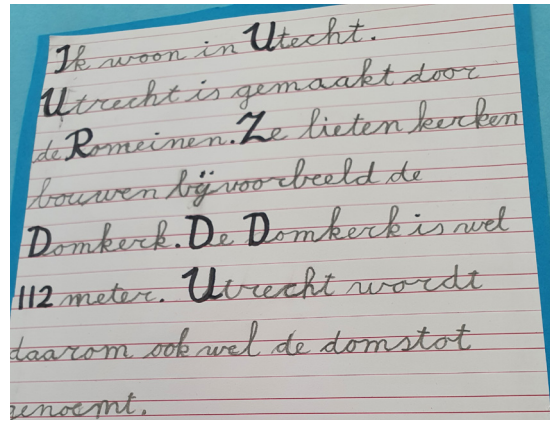 Ik woon in Utecht.
Utrecht is gemaakt door
de Romeinen. Ze lieten kerken
bouwen bijvoorbeeld de
Domkerk. De Domkerk is wel
112 meter. Utrecht wordt
daarom ook wel de domstot
genoemt.